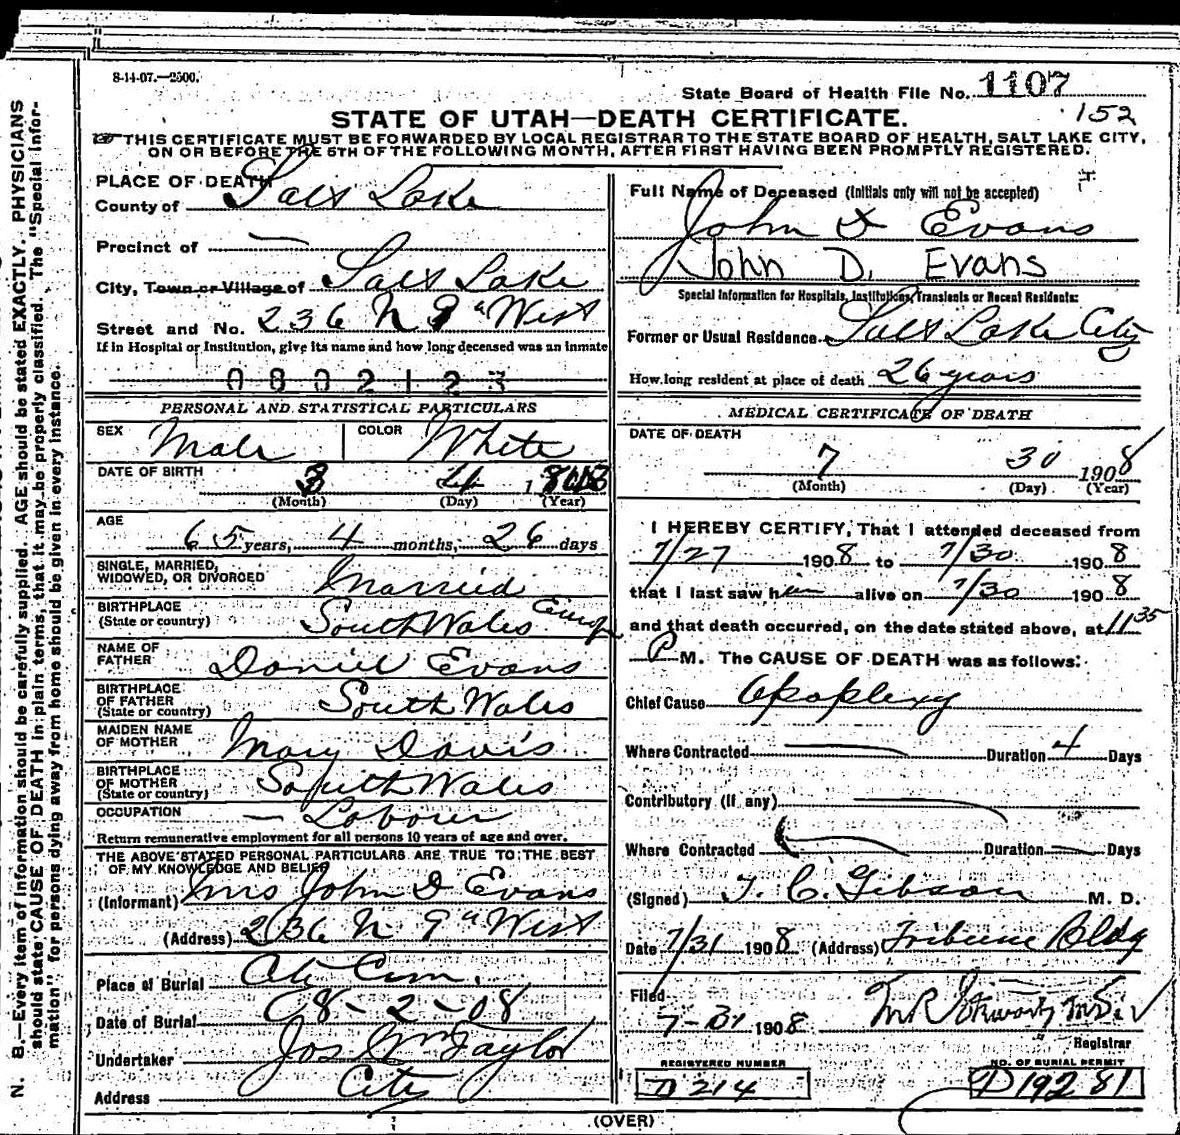 8-14-07.—2500.
State Board of Health File No. 1107
152
STATE OF UTAH—DEATH CERTIFICATE.
THIS CERTIFICATE MUST BE FORWARDED BY LOCAL REGISTRAR TO THE STATE BOARD OF HEALTH, SALT LAKE CITY,
ON OR BEFORE THE 5TH OF THE FOLLOWING MONTH, AFTER FIRST HAVING BEEN PROMPTLY REGISTERED.
PLACE OF DEATH
County of Salt Lake
Precinct of —
City, Town or Village of Salt Lake
Street and No. 236 N 9" West
If in Hospital or Institution, give its name and how long deceased was an inmate
0802123
PERSONAL AND STATISTICAL PARTICULARS
SEX Male COLOR White
DATE OF BIRTH 3 4 1843
(Month) (Day) (Year)
AGE
65 years, 4 months, 26 days
SINGLE, MARRIED,
WIDOWED, OR DIVORCED Married
BIRTHPLACE
(State or country) South Wales
NAME OF
FATHER Daniel Evans
BIRTHPLACE
OF FATHER
(State or country) South Wales
MAIDEN NAME
OF MOTHER Mary Davis
BIRTHPLACE
OF MOTHER
(State or country) South Wales
OCCUPATION — Laborer
Return remunerative employment for all persons 10 years of age and over.
THE ABOVE STATED PERSONAL PARTICULARS ARE TRUE TO THE BEST
OF MY KNOWLEDGE AND BELIEF
(Informant) Mrs John D Evans
(Address) 236 N 9" West
Place of Burial City Cem.
Date of Burial 08-2-08
Undertaker Jos Wm Taylor
Address City
Full Name of Deceased (Initials only will not be accepted)
John D Evans
John D. Evans
Special Information for Hospitals, Institutions, Transients or Recent Residents:
Former or Usual Residence Salt Lake City
How long resident at place of death 26 years
MEDICAL CERTIFICATE OF DEATH
DATE OF DEATH
7 30 1908
(Month) (Day) (Year)
I HEREBY CERTIFY, That I attended deceased from
7/27 1908 to 7/30 1908
that I last saw him alive on 7/30 1908
and that death occurred, on the date stated above, at 11 35
P M. The CAUSE OF DEATH was as follows:
Chief Cause Apoplexy
Where Contracted — Duration 4 Days
Contributory (if any) —
Where Contracted — Duration — Days
(Signed) T. C. Gibson M. D.
Date 7/31 1908 (Address) Tribune Bldg
Filed
7-31 1908
Registrar
REGISTERED NUMBER
D 214
NO. OF BURIAL PERMIT
D 19281
(OVER)
N. B.—Every item of information should be carefully supplied. AGE should be stated EXACTLY. PHYSICIANS
should state CAUSE OF DEATH in plain terms, that it may be properly classified. The "Special Infor-
mation" for persons dying away from home should be given in every instance.